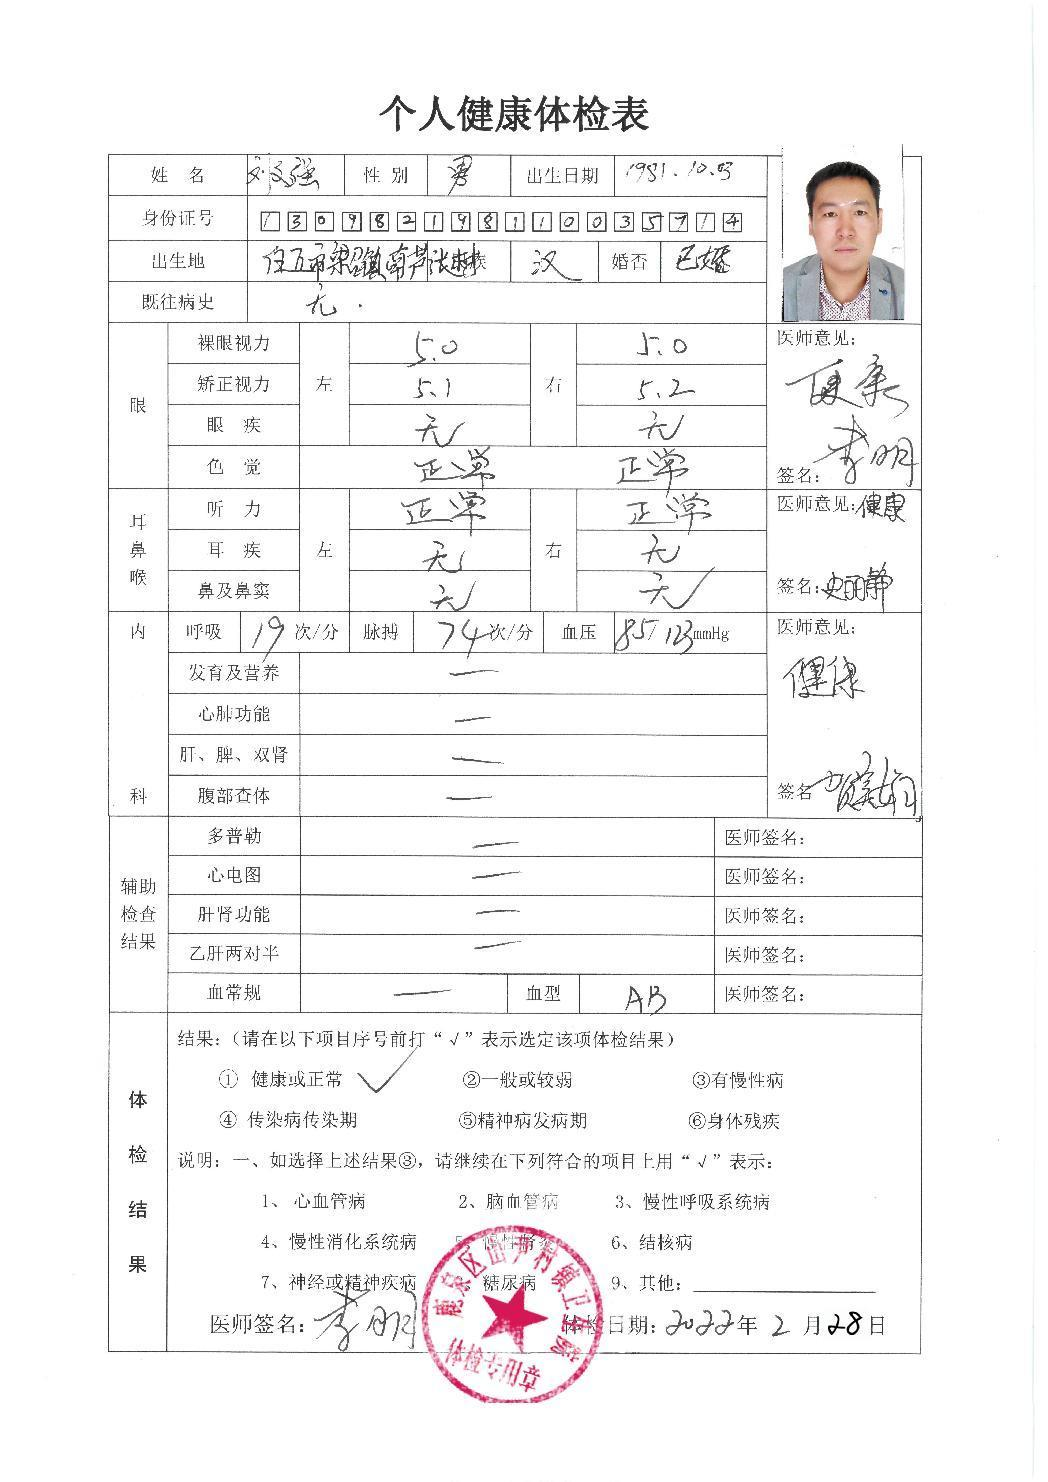 个人健康体检表
姓 名 刘汉强 性 别 男 出生日期 1981.10.03
身份证号 130982198110035714
出生地 任丘市梁召镇南芦张村 族 汉 婚否 已婚
既往病史 无.
裸眼视力 左 5.0 右 5.0 医师意见:
矫正视力 5.1 5.2 健康
眼
眼 疾 无 无
色 觉 正常 正常 签名: 李明
耳鼻喉 听 力 左 正常 右 正常 医师意见: 健康
耳 疾 无 无
鼻及鼻窦 无 无 签名: 史丽静
内 呼吸 19 次/分 脉搏 74 次/分 血压 85/123 mmHg 医师意见:
发育及营养 — 健康
心肺功能 —
肝、脾、双肾 —
科 腹部查体 — 签名
多普勒 — 医师签名:
辅助检查结果 心电图 — 医师签名:
肝肾功能 — 医师签名:
乙肝两对半 — 医师签名:
血常规 — 血型 AB 医师签名:
体检结果
结果:(请在以下项目序号前打“√”表示选定该项体检结果)
① 健康或正常 ✓ ②一般或较弱 ③有慢性病
④ 传染病传染期 ⑤精神病发病期 ⑥身体残疾
说明:一、如选择上述结果③,请继续在下列符合的项目上用“√”表示:
1、 心血管病 2、脑血管病 3、慢性呼吸系统病
4、慢性消化系统病 5、慢性肾炎 6、结核病
7、神经或精神疾病 糖尿病 9、其他:
医师签名: 李明 体检日期: 2022年 2 月 28 日
体检专用章